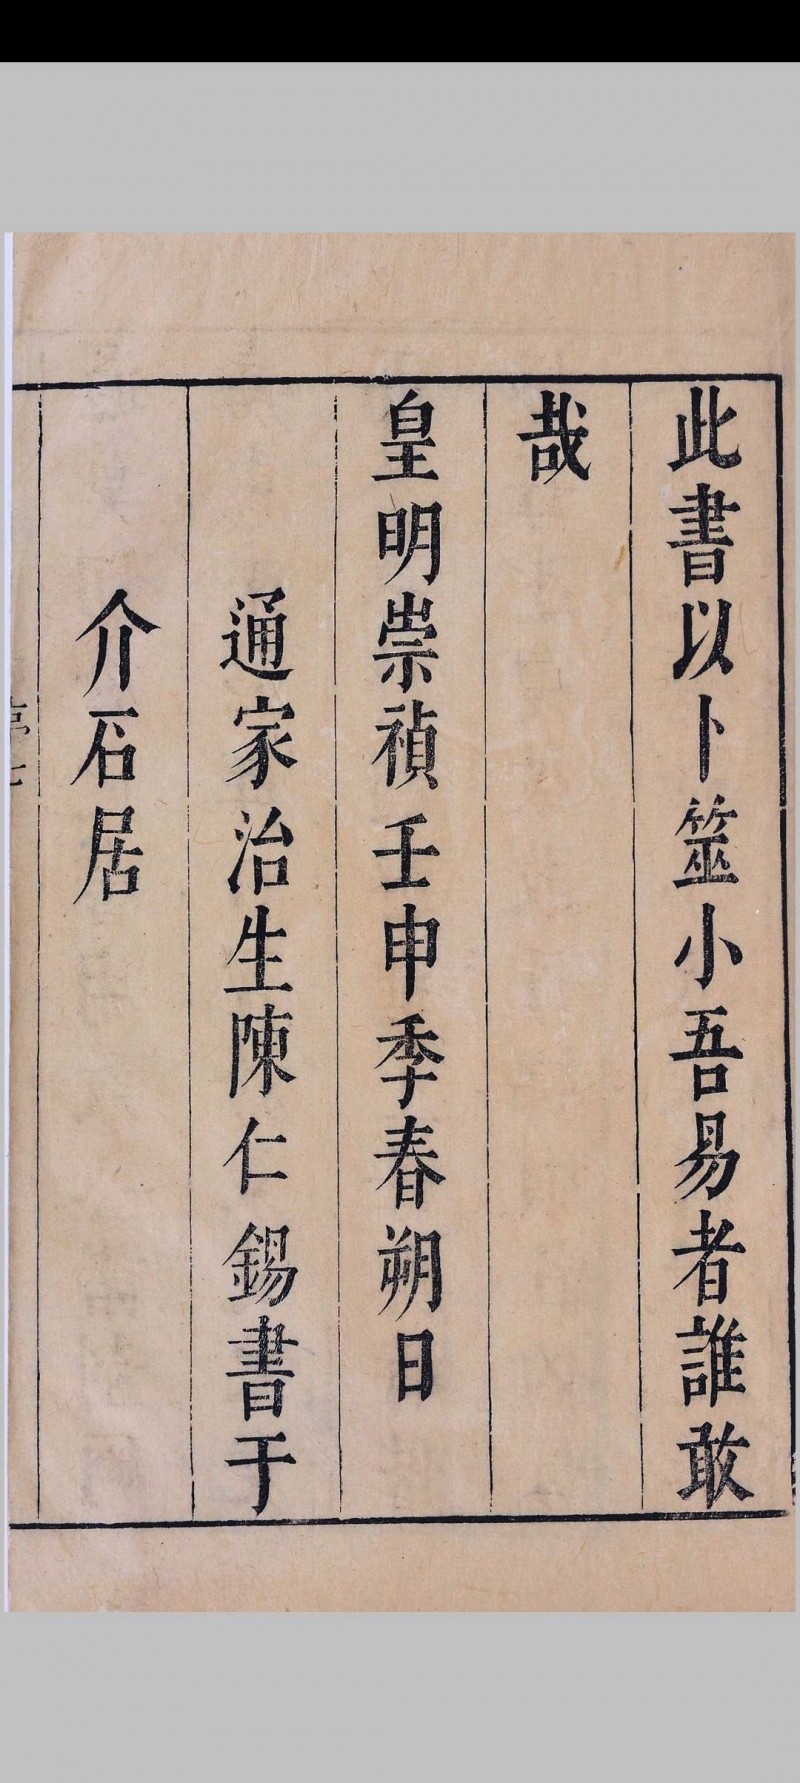 此書以卜筮小吾易者誰敢
哉
皇明崇禎壬申季春朔日
通家治生陳仁錫書于
介石居